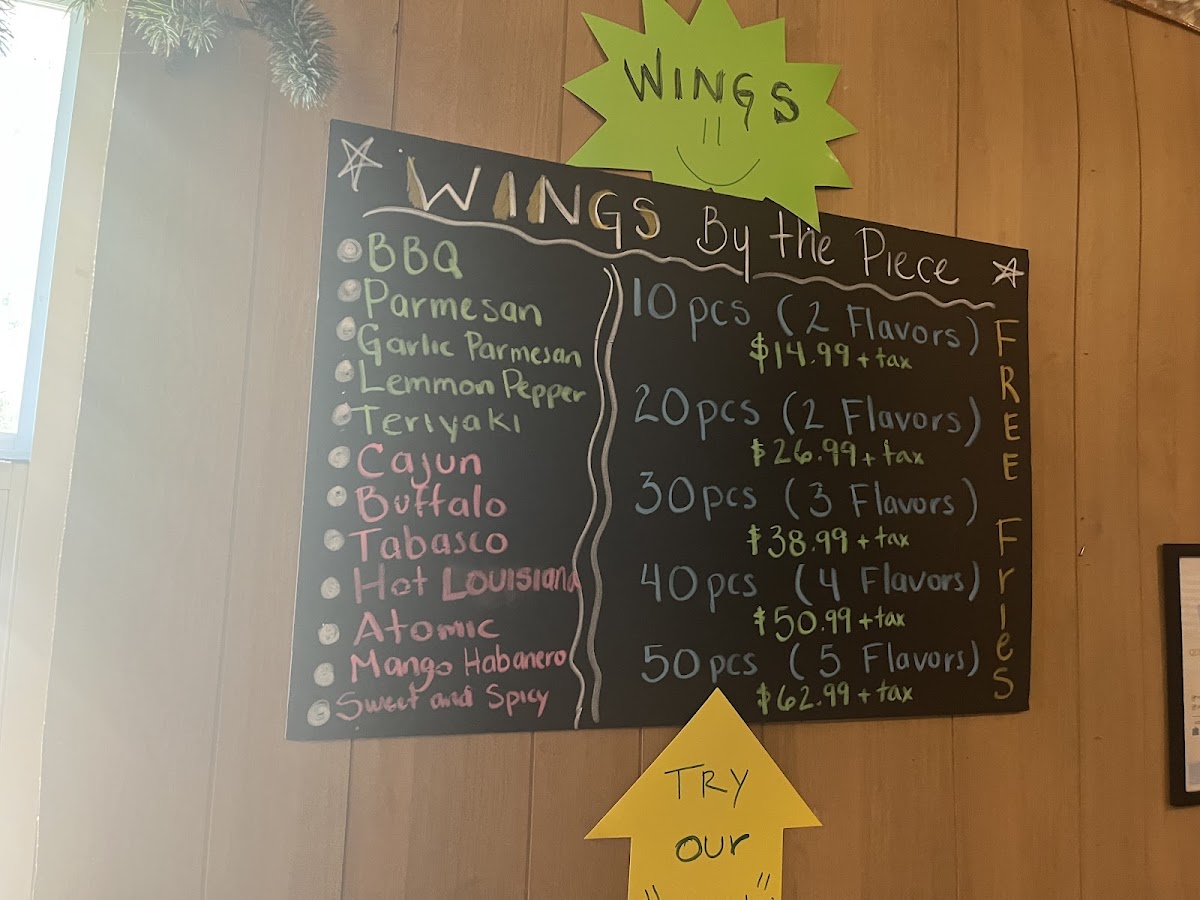 WINGS
WINGS By the Piece
BBQ
Parmesan
Garlic Parmesan
Lemmon Pepper
Teriyaki
Cajun
Buffalo
Tabasco
Hot Louisiana
Atomic
Mango Habanero
Sweet and Spicy
10 pcs (2 Flavors)
$14.99 + tax
20 pcs (2 Flavors)
$26.99 + tax
30 pcs (3 Flavors)
$38.99 + tax
40 pcs (4 Flavors)
$50.99 + tax
50 pcs (5 Flavors)
$62.99 + tax
FREE FrieS
TRY
our